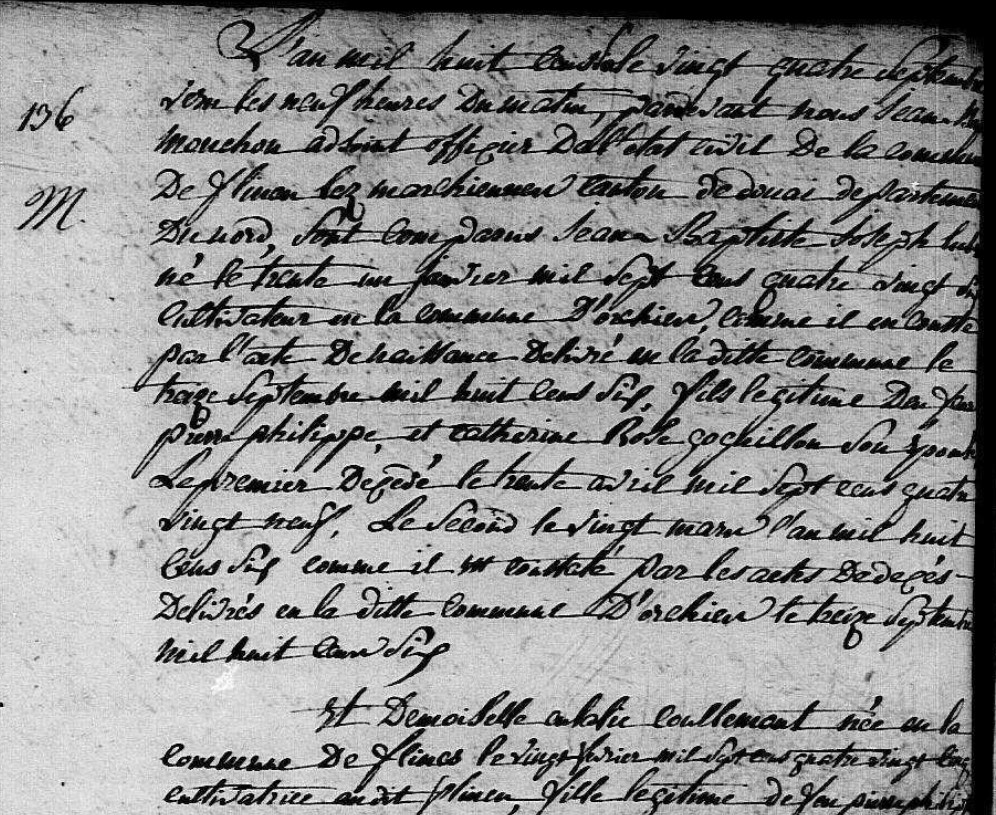 L'an mil huit cens six le vingt quatre septembre
vers les neuf heures du matin, pardevant nous Jean
136
mouchon adjoint officier De l'état civil De la commune
M
De flines lez marchiennes canton de douai departement
Du nord, sont comparus Jean Baptiste Joseph
né le trente un janvier mil sept cens quatre vingt six
cultivateur en la commune D'orchies, comme il en conste
par l'acte De naissance Delivré en la ditte commune le
treize septembre mil huit cens six, fils legitime De feu
pierre philippe, et catherine Rose coquillon son épouse
Le premier Decedé le trente avril mil sept cens quatre
vingt neuf, Le second le vingt mars l'an mil huit
cens six comme il est constaté par les actes De decés
Delivrés en la ditte commune D'orchies le treize septembre
mil huit cens six
Et Demoiselle eulalie coullemont née en la
commune De flines le vingt fevrier mil sept cens quatre vingt cinq
cultivatrice audit flines, fille legitime de feu pierre philippe